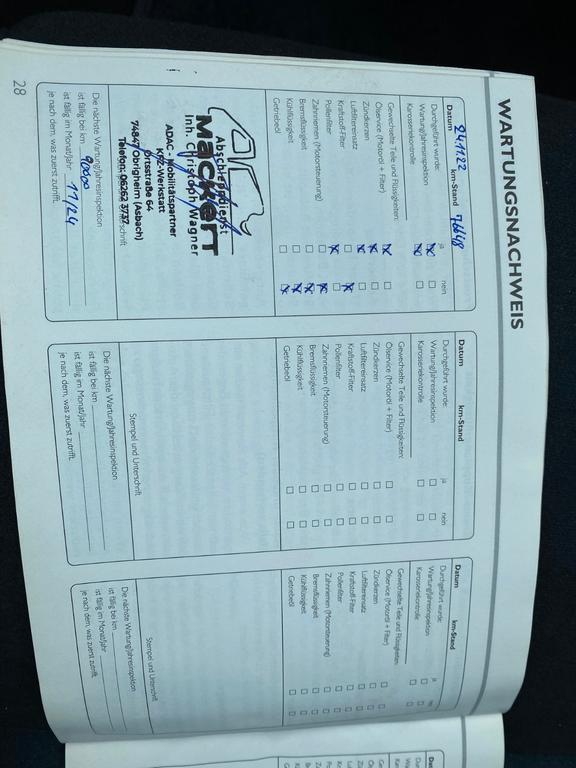 WARTUNGSNACHWEIS
Datum 24.11.22 km-Stand 76648
Durchgeführt wurde: ja nein
Wartung/Jahresinspektion
Karosseriekontrolle
Gewechselte Teile und Flüssigkeiten:
Ölservice (Motoröl + Filter)
Zündkerzen
Luftfiltereinsatz
Kraftstoff-Filter
Pollenfilter
Zahnriemen (Motorsteuerung)
Bremsflüssigkeit
Kühlflüssigkeit
Getriebeöl
Abschleppdienst
Mackert
Inh. Christoph Wagner
ADAC - Mobilitätspartner
KFZ-Werkstatt
Ortsstraße 64
74847 Obrigheim (Asbach)
Telefon: 06262 3737
Die nächste Wartung/Jahresinspektion
ist fällig bei km 90000
ist fällig im Monat/Jahr 11/24
je nach dem, was zuerst zutrifft.
Datum km-Stand
Durchgeführt wurde: ja nein
Wartung/Jahresinspektion
Karosseriekontrolle
Gewechselte Teile und Flüssigkeiten:
Ölservice (Motoröl + Filter)
Zündkerzen
Luftfiltereinsatz
Kraftstoff-Filter
Pollenfilter
Zahnriemen (Motorsteuerung)
Bremsflüssigkeit
Kühlflüssigkeit
Getriebeöl
Stempel und Unterschrift
Die nächste Wartung/Jahresinspektion
ist fällig bei km
ist fällig im Monat/Jahr
je nach dem, was zuerst zutrifft.
Datum km-Stand
Durchgeführt wurde: ja
Wartung/Jahresinspektion
Karosseriekontrolle
Gewechselte Teile und Flüssigkeiten:
Ölservice (Motoröl + Filter)
Zündkerzen
Luftfiltereinsatz
Kraftstoff-Filter
Pollenfilter
Zahnriemen (Motorsteuerung)
Bremsflüssigkeit
Kühlflüssigkeit
Getriebeöl
Stempel und Unterschrift
Die nächste Wartung/Jahresinspektion
ist fällig bei km
ist fällig im Monat/Jahr
je nach dem, was zuerst zutrifft.
28